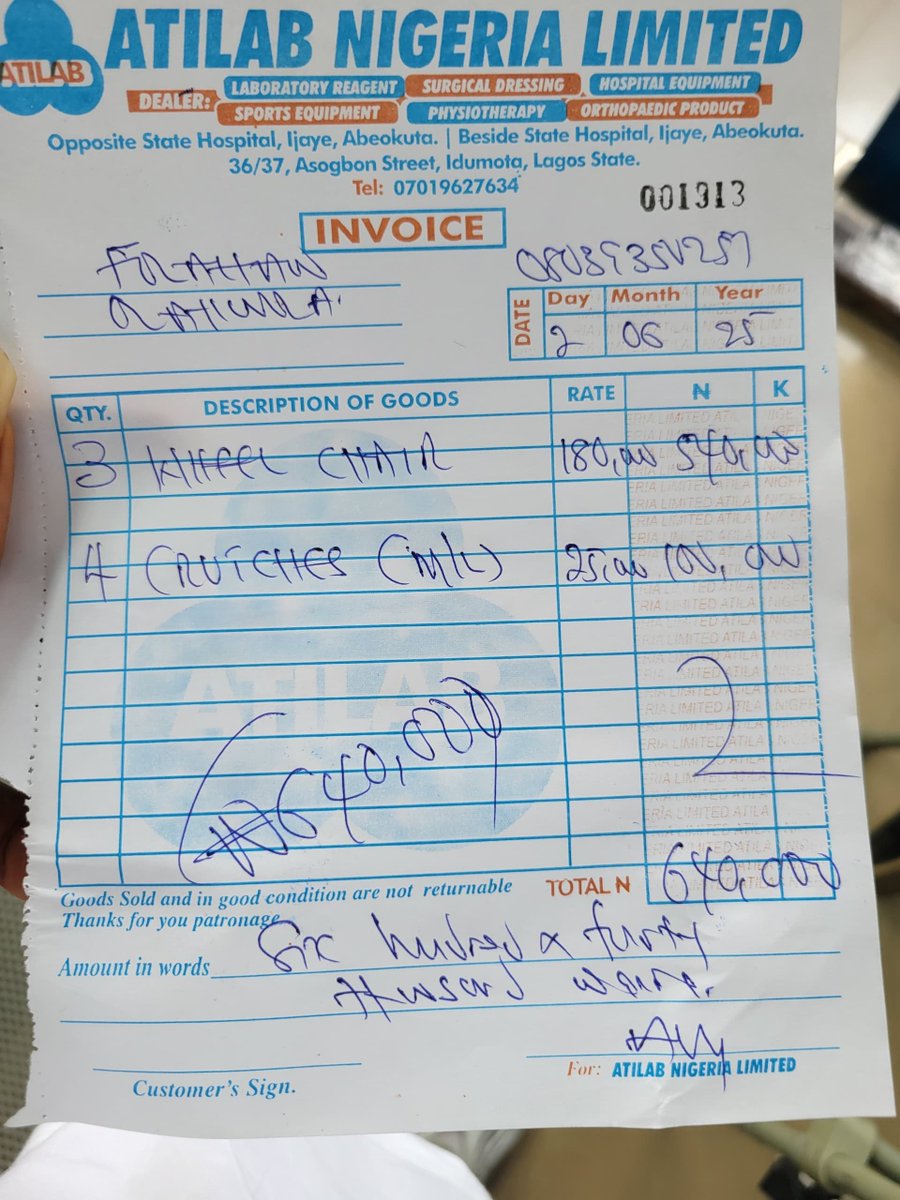 ATILAB
ATILAB NIGERIA LIMITED
DEALER: LABORATORY REAGENT SURGICAL DRESSING HOSPITAL EQUIPMENT
SPORTS EQUIPMENT PHYSIOTHERAPY ORTHOPAEDIC PRODUCT
Opposite State Hospital, Ijaye, Abeokuta. | Beside State Hospital, Ijaye, Abeokuta.
36/37, Asogbon Street, Idumota, Lagos State.
Tel: 07019627634
001313
INVOICE
DATE Day Month Year
2 06 25
QTY. DESCRIPTION OF GOODS RATE N K
3 WHEEL CHAIR 180,000 540,000
4 CRUTCHES (M/L) 25,000 100,000
ATILAB
₦640,000
Goods Sold and in good condition are not returnable
TOTAL N 640,000
Thanks for you patronage
Amount in words Six hundred &
For: ATILAB NIGERIA LIMITED
Customer's Sign.